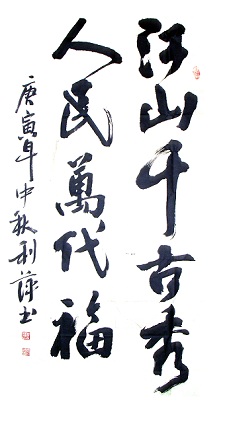 江山千古秀
人民萬代福
庚寅年中秋利萍书